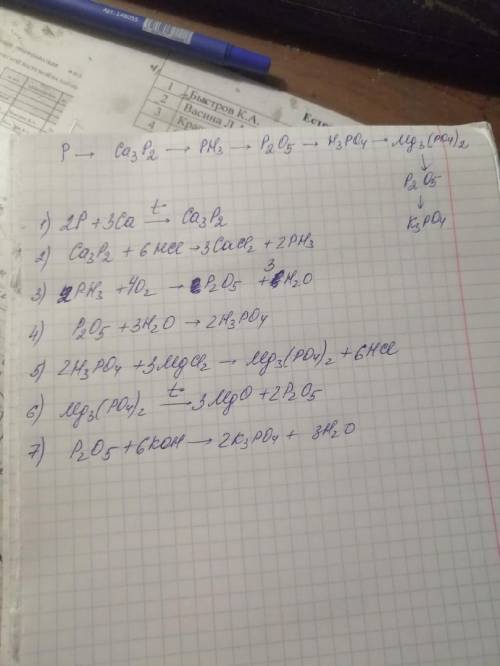 Арт. 146055
1 Быстров К.А.
2 Васина Л.
3
4
P → Ca₃P₂ → PH₃ → P₂O₅ → H₃PO₄ → Mg₃(PO₄)₂
↓
P₂O₅
↓
K₃PO₄
1) 2P + 3Ca t→ Ca₃P₂
2) Ca₃P₂ + 6HCl → 3CaCl₂ + 2PH₃
3) 2PH₃ + 4O₂ → P₂O₅ + 3H₂O
4) P₂O₅ + 3H₂O → 2H₃PO₄
5) 2H₃PO₄ + 3MgCl₂ → Mg₃(PO₄)₂ + 6HCl
6) Mg₃(PO₄)₂ t→ 3MgO + 2P₂O₅
7) P₂O₅ + 6KOH → 2K₃PO₄ + 3H₂O